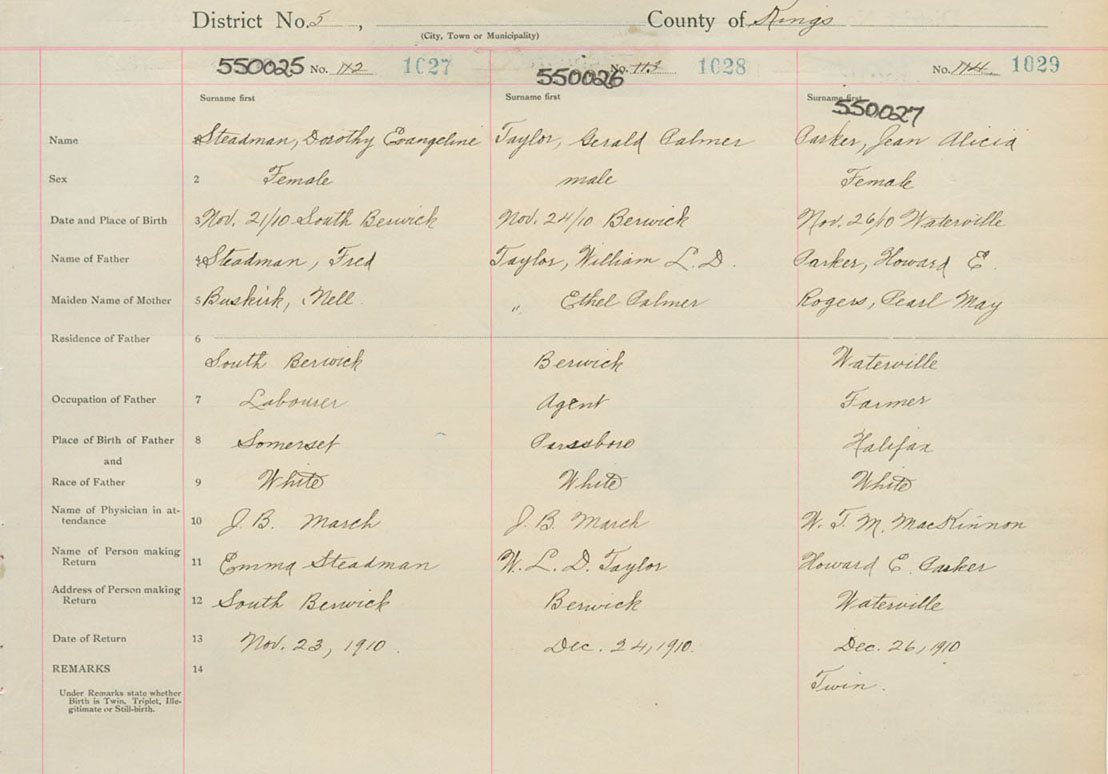 District No. 5 , County of Kings
(City, Town or Municipality)
550025 No. 112 1027 550026 No. 113 1028 No. 114 1029
Surname first Surname first Surname first
550027
Name 1 Steadman, Dorothy Evangeline Taylor, Gerald Palmer Parker, Jean Alicia
Sex 2 Female male Female
Date and Place of Birth 3 Nov. 21/10 South Berwick Nov. 24/10 Berwick Nov. 26/10 Waterville
Name of Father 4 Steadman, Fred Taylor, William L. D. Parker, Howard E.
Maiden Name of Mother 5 Buskirk, Nell. " Ethel Palmer Rogers, Pearl May
Residence of Father 6
South Berwick Berwick Waterville
Occupation of Father 7 Labourer Agent Farmer
Place of Birth of Father 8 Somerset Parssboro Halifax
and
Race of Father 9 White White White
Name of Physician in at-
tendance 10 J. B. March J. B. March W. T. M. MacKinnon
Name of Person making
Return 11 Emma Steadman W. L. D. Taylor Howard E. Parker
Address of Person making
Return 12 South Berwick Berwick Waterville
Date of Return 13 Nov. 23, 1910. Dec. 24, 1910. Dec. 26, 1910
REMARKS 14
Twin.
Under Remarks state whether
Birth is Twin, Triplet, Ille-
gitimate or Still-birth.